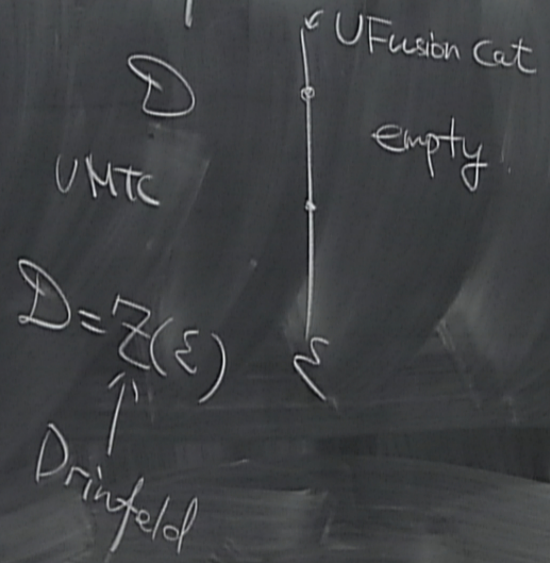 UFusion Cat
D
empty
UMTC
D=Z(ε)
ε
Drinfeld